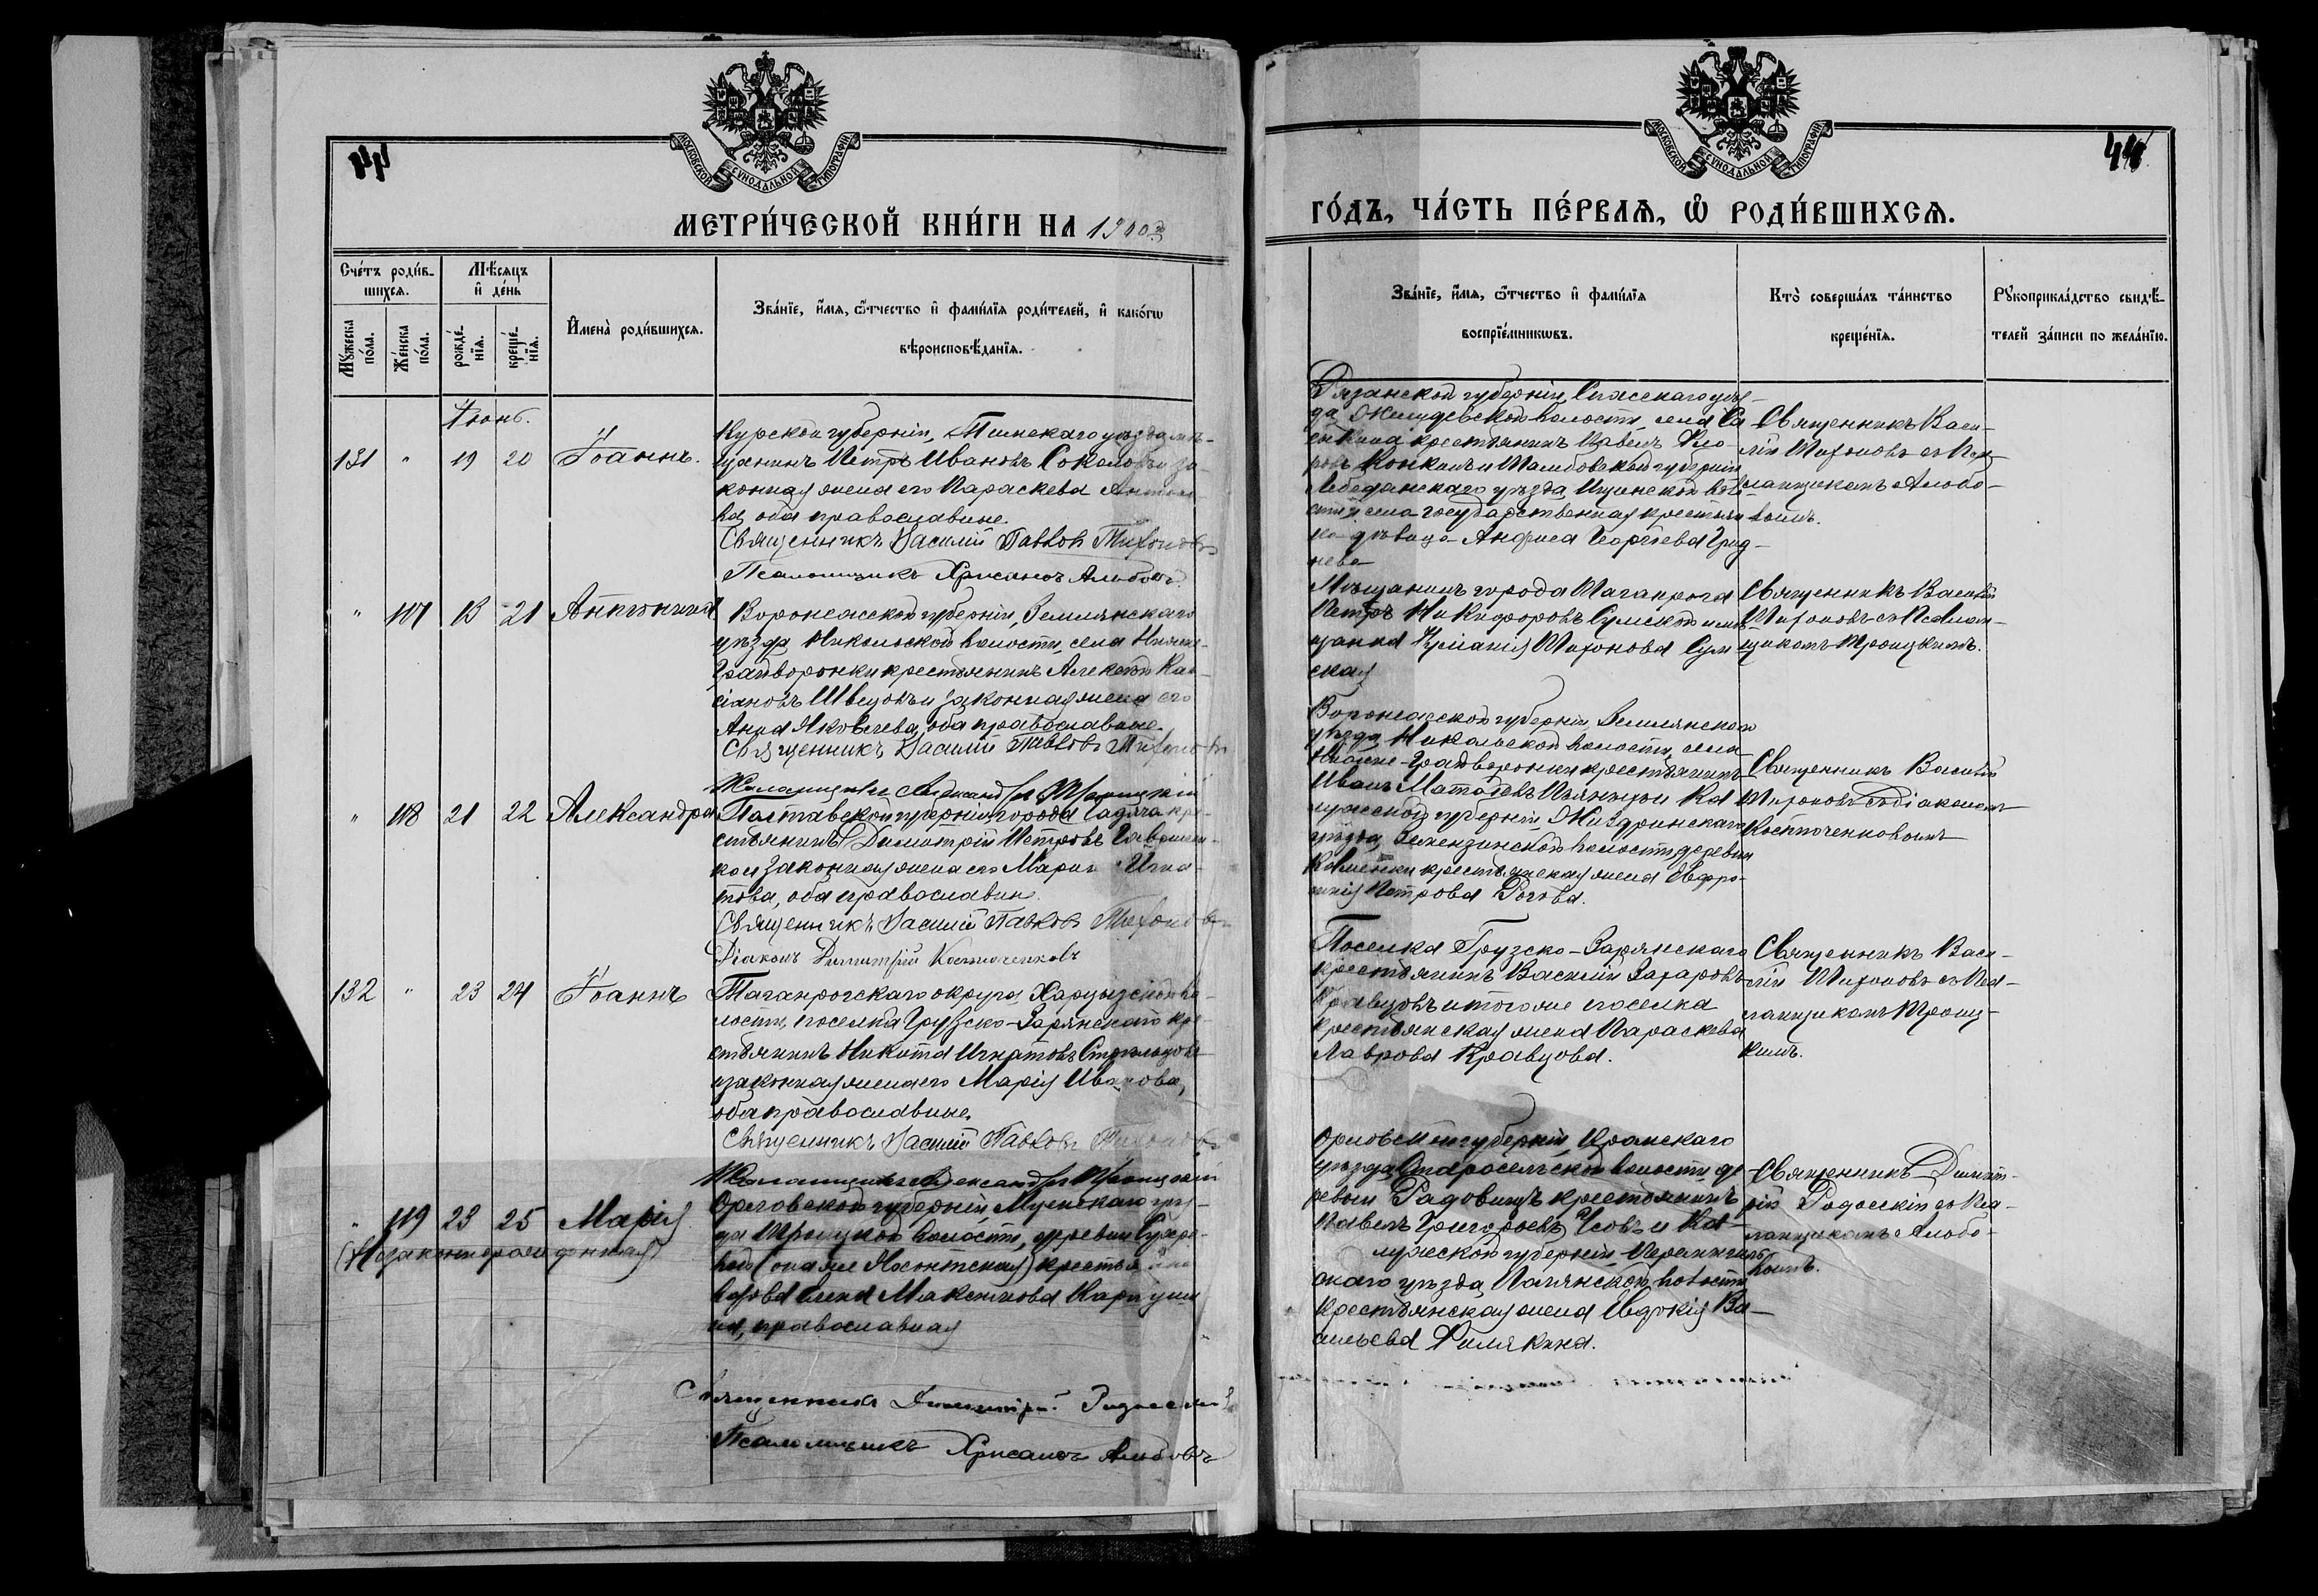 44
МОСКОВСКОЙ СУНОДАЛЬНОЙ ТИПОГРАФИИ
МЕТРИ́ЧЕСКОЙ КНИ́ГИ НА 1903
Сче́тъ роди́в-
шихся.
Мѣсяцъ
и҆ де́нь
Мꙋ́жеска
по́ла.
Же́нска
по́ла.
рожде́-
нїѧ.
креще́-
нїѧ.
И҆мена̀ роди́вшихсѧ.
Зва́нїе, и҆́мѧ, ѻ҆́тчество и҆ фами́лїѧ роди́телей, и҆ како́гѡ
вѣроисповѣ́данїѧ.
Іюнь.
131 " 19 20 Іоаннъ.
Курской губерніи, Тимскаго уѣзда мѣ-
щанинъ Петръ Ивановъ Соколовъ и за-
конная жена его Параскева Антоно-
ва, оба православные.
Священникъ Василій Павловъ Тихоновъ
Псаломщикъ Хрисанѳъ Альбовъ
" 117 18 21 Антонина
Воронежской губерніи, Землянскаго
уѣзда Никольской волости, села Нижне-
Грайворонки крестьянинъ Алексѣй Кас-
сіановъ Швецовъ и законная жена его
Анна Яковлева, оба православные.
Священникъ Василій Павловъ Тихоновъ
Псаломщикъ Александръ Троицкій
" 118 21 22 Александра
Полтавской губерніи города Гадяча кре-
стьянинъ Димитрій Петровъ Гаврилен-
ко и законная жена его Марія Игна-
това, оба православные.
Священникъ Василій Павловъ Тихоновъ
Діаконъ Димитрій Костюченковъ
132 " 23 24 Іоаннъ
Таганрогскаго округа, Харцызской во-
лости, поселка Грузско-Зарянскаго кре-
стьянинъ Никита Игнатовъ Стрѣльцовъ
и законная жена его Марія Иванова,
оба православные.
Священникъ Василій Павловъ Тихоновъ
Псаломщикъ Александръ Троицкій
" 119 23 25 Марія
(Незаконнорожденная)
Орловской губерніи, Мценскаго уѣз-
да Троицкой волости, деревни
(она же ) крестьян
вдова Елена Максимова
на, православная
Священникъ Димитрій
Псаломщикъ Хрисанѳъ Альбовъ
44
МОСКОВСКОЙ СУНОДАЛЬНОЙ ТИПОГРАФИИ
ГО́ДЪ, ЧА́СТЬ ПЕ́РВАѦ, Ѽ РОДИ́ВШИХСѦ.
Зва́нїе, и҆́мѧ, ѻ҆́тчество и҆ фами́лїѧ
воспрїе́мникѡвъ.
Кто̀ соверша́лъ та́инство
креще́нїѧ.
Рꙋкоприкла́дство свидѣ́-
телей за́писи по жела́нїю.
Рязанской губерніи, Спасскаго уѣз-
да Ижевской волости, села
крестьянинъ Павелъ
ровъ и Тамбовской губерніи
Лебедянскаго уѣзда, воло
сти, села государственная крестьян
ка дѣвица Анфиса Георгіева Грид-
нева
Священникъ Васи-
лій Тихоновъ съ Пса-
ломщикомъ Альбо-
вымъ.
Мѣщанинъ города Таганрога
Петръ Никифоровъ Сумской и мѣ-
щанка Тихонова Сум
ская
Священникъ Василій
Тихоновъ съ Псалом-
щикомъ Троицкимъ.
Воронежской губерніи, Землянскаго
уѣзда, Никольской волости, села
Нижне-Грайворонки крестьянинъ
Иванъ и Ка
лужской губерніи, Жиздринскаго
уѣзда, волости, деревни
Каменки крестьянская жена Евфро-
синія Петрова Рогова.
Священникъ Василій
Тихоновъ съ Діакономъ
Костюченковымъ
Поселка Грузско-Зарянскаго
крестьянинъ Василій Захаровъ
Кравцовъ и того же поселка
крестьянская жена Параскева
Лаврова Кравцова.
Священникъ Васи-
лій Тихоновъ съ Пса-
ломщикомъ Троиц-
кимъ.
Орловской губерніи, Кромскаго
уѣзда, Старосельской волости, де
ревни крестьянинъ
Павелъ Григорьевъ и Ка-
лужской губерніи
скаго уѣзда, волости
крестьянская жена Евдокія Ва-
сильева Филякина.
Священникъ Димит-
рій съ Пса-
ломщикомъ Альбо-
вымъ.